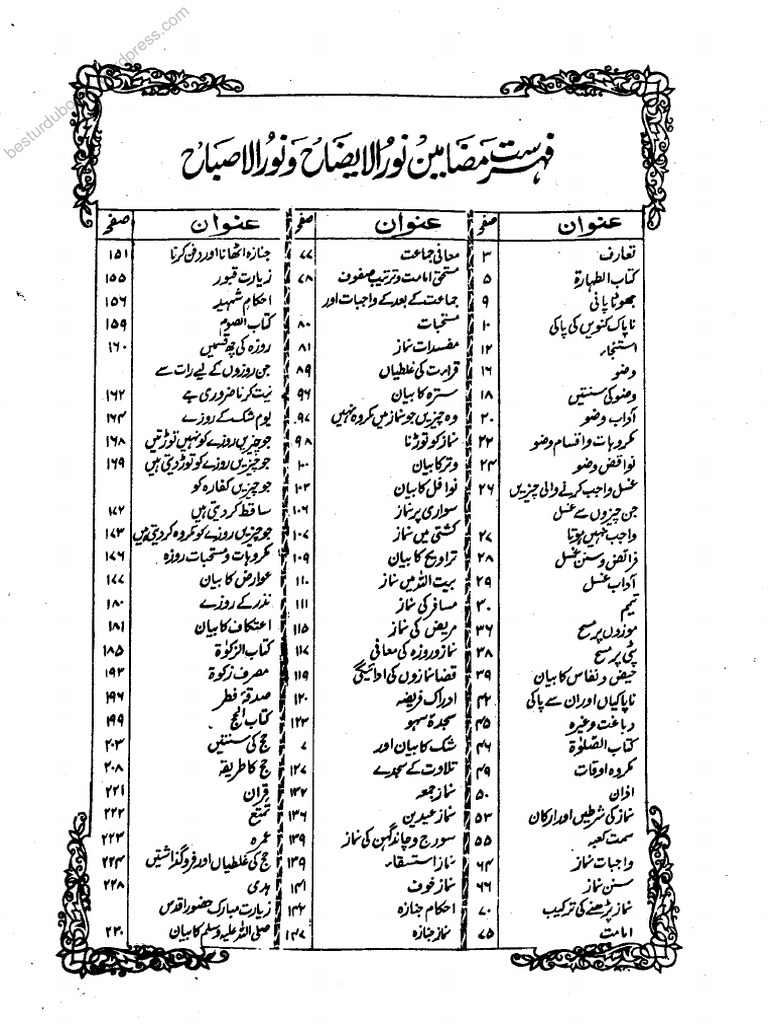 besturdubo
rdpress.com
فہرست مضامین نور الایضاح و نور الاصباح
عنوان صفحہ
تعارف ۳
کتاب الطہارۃ ۵
جھوٹا پانی ۹
ناپاک کنویں کی پاکی ۱۰
استنجاء ۱۲
وضو ۱۶
وضو کی سنتیں ۱۸
آداب وضو ۲۰
مکروہات و اقسام وضو ۲۲
نواقض وضو ۲۴
غسل واجب کرنے والی چیزیں ۲۶
جن چیزوں سے غسل
واجب نہیں ہوتا ۲۷
فرائض و سنن غسل ۲۸
آداب غسل ۲۹
تیمم ۳۰
موزوں پر مسح ۳۶
پٹی پر مسح ۳۸
حیض و نفاس کا بیان ۳۹
ناپاکیاں اور ان سے پاکی ۴۲
دباغت وغیرہ ۴۵
کتاب الصلوٰۃ ۴۶
مکروہ اوقات ۴۹
اذان ۵۰
نماز کی شرطیں اور ارکان ۵۳
سمت کعبہ ۵۵
واجبات نماز ۶۴
سنن نماز ۶۶
نماز پڑھنے کی ترکیب ۷۰
امامت ۷۵
عنوان صفحہ
معافی جماعت ۷۷
مستحق امامت و ترتیب صفوف ۷۸
جماعت کے بعد کے واجبات اور
مستحبات ۸۰
مفسدات نماز ۸۱
قراءت کی غلطیاں ۸۹
سترہ کا بیان ۹۶
وہ چیزیں جو نماز میں مکروہ نہیں ۹۷
نماز کو توڑنا ۹۸
وتر کا بیان ۱۰۰
نوافل کا بیان ۱۰۳
سواری پر نماز ۱۰۶
کشتی میں نماز ۱۰۷
تراویح کا بیان ۱۰۹
بیت اللہ میں نماز ۱۱۰
مسافر کی نماز ۱۱۱
مریض کی نماز ۱۱۵
نماز و روزہ کی معافی ۱۱۷
قضا نمازوں کی ادائیگی ۱۱۹
ادراک فریضہ ۱۲۰
سجدۂ سہو ۱۲۳
شک کا بیان اور ۷
تلاوت کے سجدے ۱۲۷
نماز جمعہ ۱۳۲
نماز عیدین ۱۳۶
سورج و چاند گہن کی نماز ۱۳۹
نماز استسقاء ۱۳۹
نماز خوف ۱۴۱
احکام جنازہ ۱۴۲
نماز جنازہ ۱۴۷
عنوان صفحہ
جنازہ اٹھانا اور دفن کرنا ۱۵۱
زیارت قبور ۱۵۵
احکام شہید ۱۵۶
کتاب الصوم ۱۵۹
روزہ کی چھ قسمیں ۱۶۰
جن روزوں کے لیے رات سے
نیت کرنا ضروری ہے ۱۶۲
یوم شک کے روزے ۱۶۴
جو چیزیں روزے کو نہیں توڑتیں ۱۶۸
جو چیزیں روزے کو توڑ دیتی ہیں ۱۶۹
جو چیزیں کفارہ کو
ساقط کر دیتی ہیں ۱۷۲
جو چیزیں روزے کو مکروہ کر دیتی ہیں ۱۷۳
مکروہات و مستحبات روزہ ۱۷۶
عوارض کا بیان ۱۷۷
نذر کے روزے ۱۸۰
اعتکاف کا بیان ۱۸۱
کتاب الزکوٰۃ ۱۸۵
مصرف زکوٰۃ ۱۹۳
صدقۂ فطر ۱۹۶
کتاب الحج ۱۹۹
حج کی سنتیں ۲۰۳
حج کا طریقہ ۲۰۸
قران ۲۲۱
تمتع ۲۲۲
عمرہ ۲۲۳
حج کی غلطیاں اور فروگذاشتیں ۲۲۴
ہدی ۲۲۸
زیارت مبارک حضور اقدس
صلی اللہ علیہ وسلم کا بیان ۲۳۰